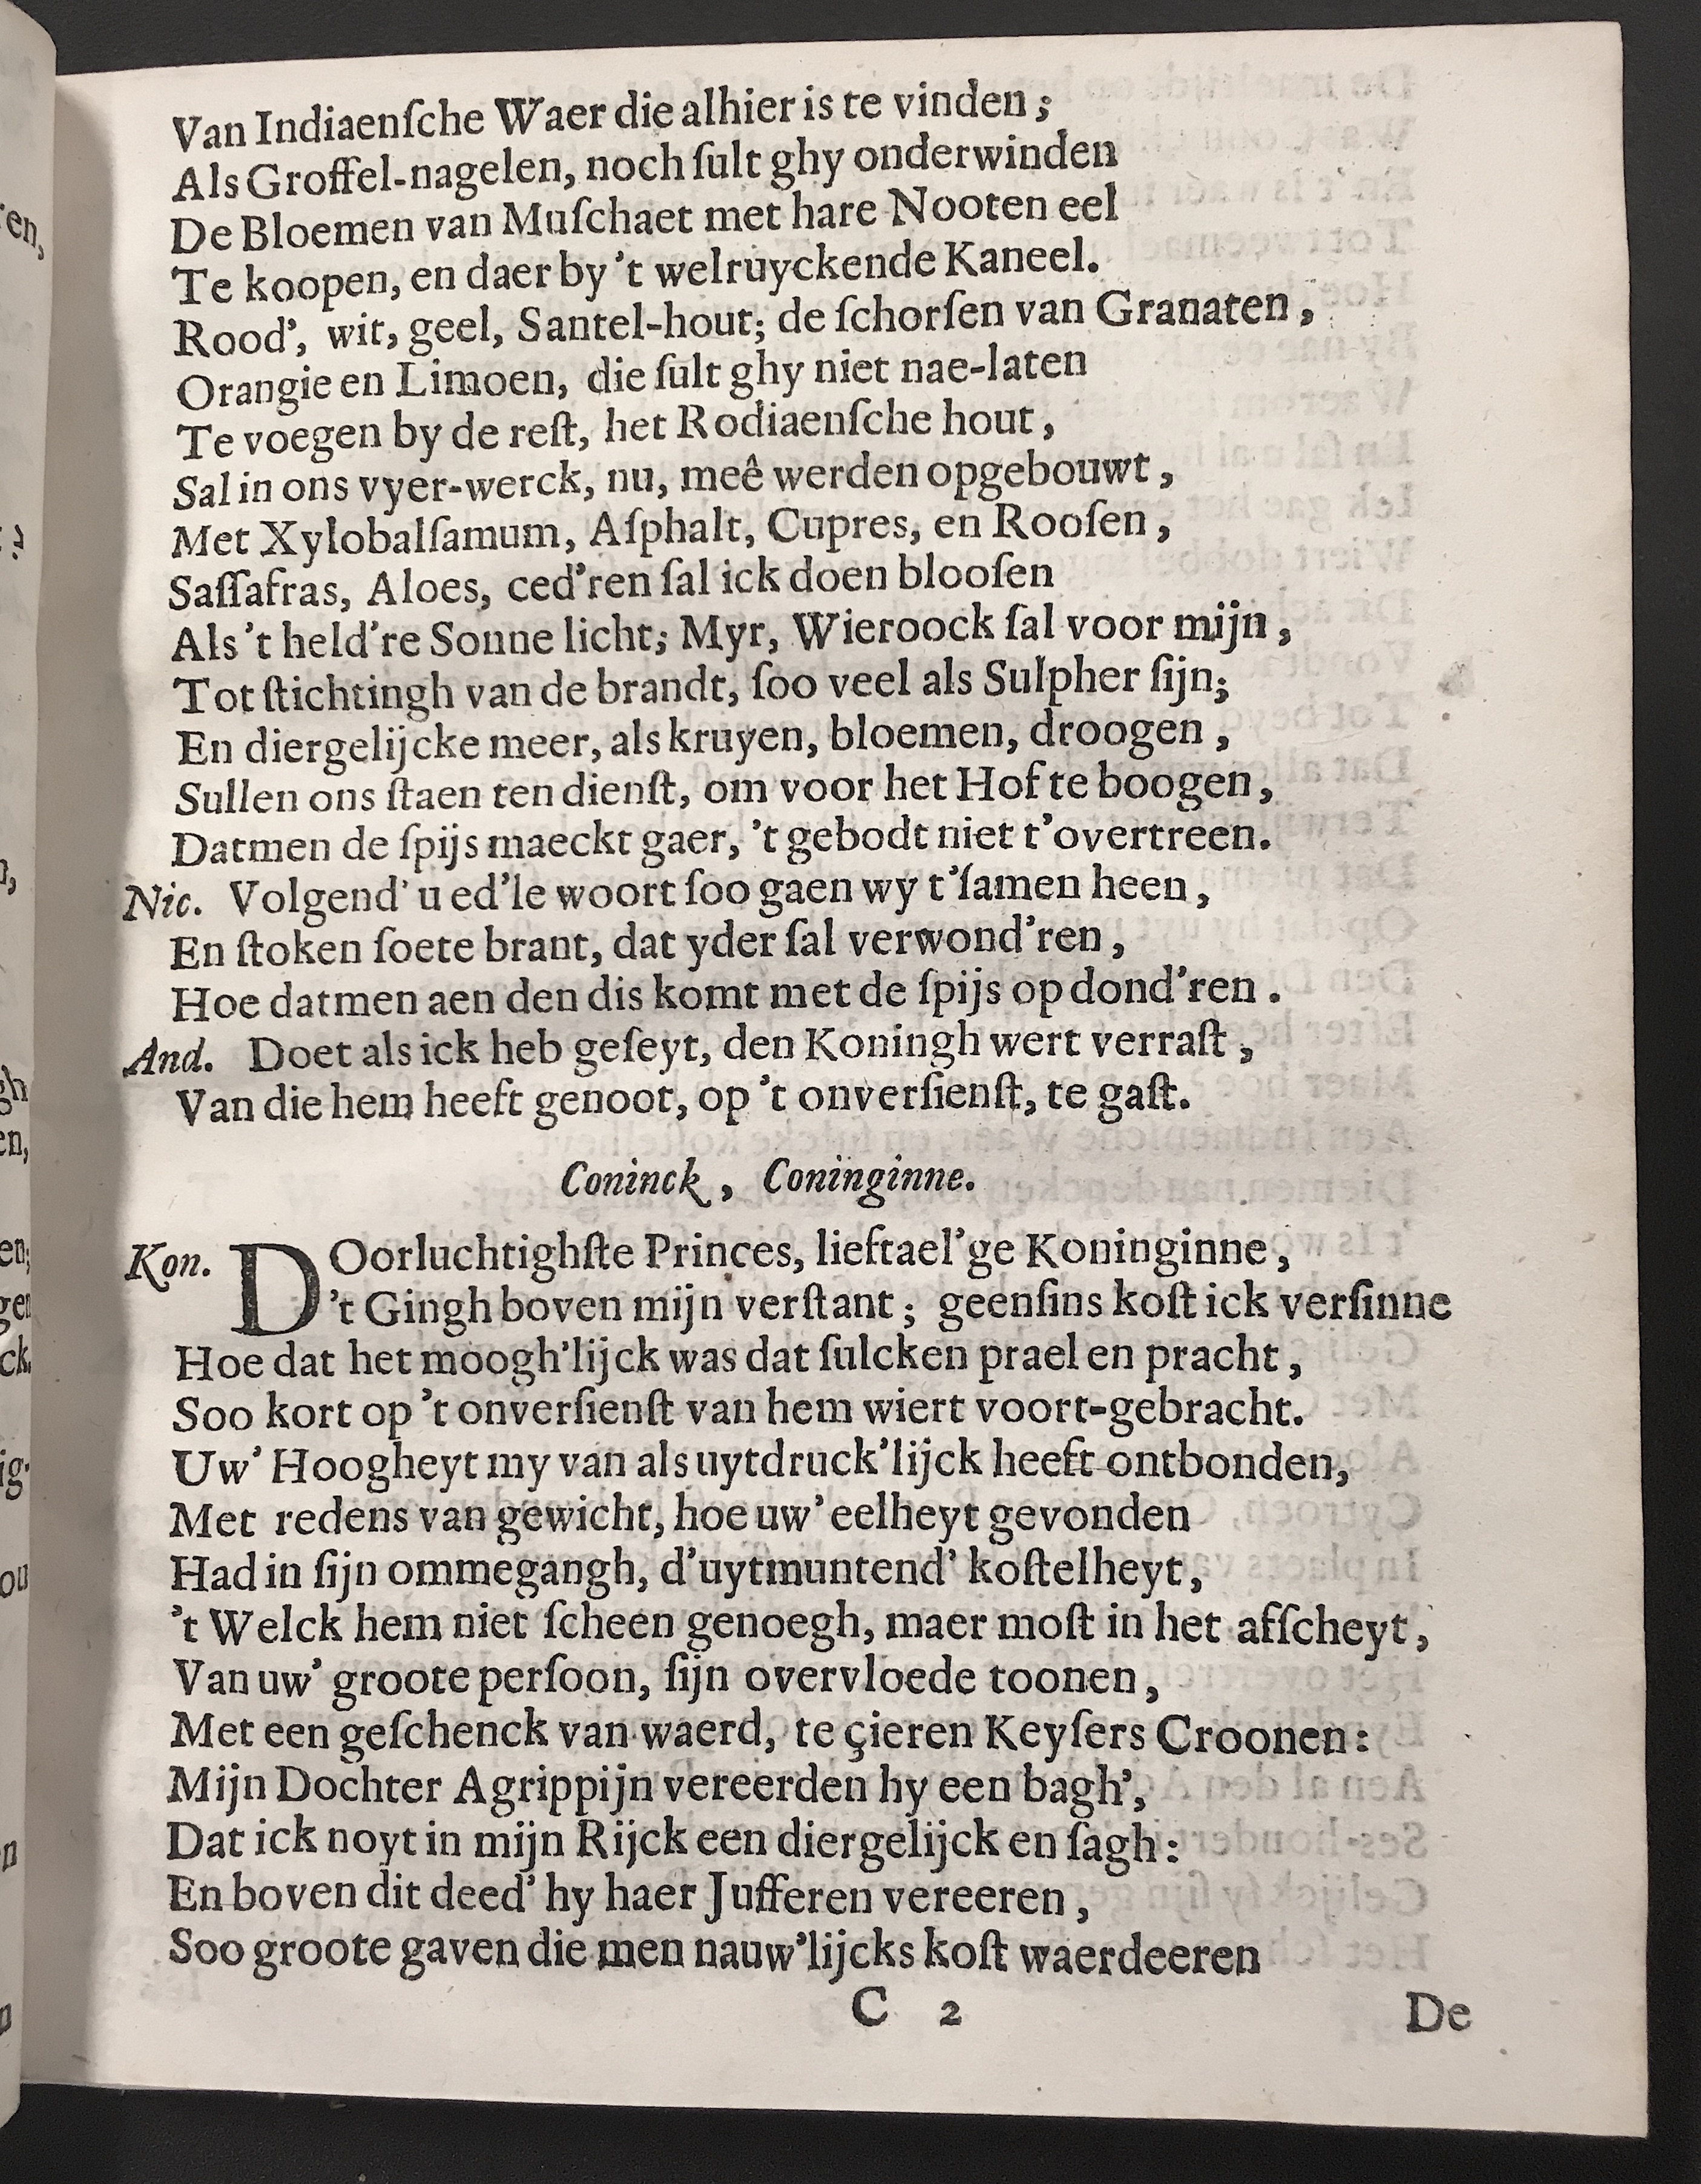 Van Indiaenſche Waer die alhier is te vinden;
Als Groffel-nagelen, noch ſult ghy onderwinden
De Bloemen van Muſchaet met hare Nooten eel
Te koopen, en daer by 't welruyckende Kaneel.
Rood', wit, geel, Santel-hout; de ſchorſen van Granaten,
Orangie en Limoen, die ſult ghy niet nae-laten
Te voegen by de reſt, het Rodiaenſche hout,
Sal in ons vyer-werck, nu, meê werden opgebouwt,
Met Xylobalſamum, Aſphalt, Cupres, en Rooſen,
Saſſafras, Aloes, ced'ren ſal ick doen blooſen
Als 't held're Sonne licht; Myr, Wieroock ſal voor mijn,
Tot ſtichtingh van de brandt, ſoo veel als Sulpher ſijn;
En diergelijcke meer, als kruyen, bloemen, droogen,
Sullen ons ſtaen ten dienſt, om voor het Hof te boogen,
Datmen de ſpijs maeckt gaer, 't gebodt niet t'overtreen.
Nic. Volgend' u ed'le woort ſoo gaen wy t'ſamen heen,
En ſtoken ſoete brant, dat yder ſal verwond'ren,
Hoe datmen aen den dis komt met de ſpijs op dond'ren.
And. Doet als ick heb geſeyt, den Koningh wert verraſt,
Van die hem heeft genoot, op 't onverſienſt, te gaſt.
Coninck, Coninginne.
Kon. DOorluchtighſte Princes, lieftael'ge Koninginne,
't Gingh boven mijn verſtant; geenſins koſt ick verſinne
Hoe dat het moogh'lijck was dat ſulcken prael en pracht,
Soo kort op 't onverſienſt van hem wiert voort-gebracht.
Uw' Hoogheyt my van als uytdruck'lijck heeft ontbonden,
Met redens van gewicht, hoe uw' eelheyt gevonden
Had in ſijn ommegangh, d'uytmuntend' koſtelheyt,
't Welck hem niet ſcheen genoegh, maer moſt in het afſcheyt,
Van uw' groote perſoon, ſijn overvloede toonen,
Met een geſchenck van waerd, te çieren Keyſers Croonen:
Mijn Dochter Agrippijn vereerden hy een bagh',
Dat ick noyt in mijn Rijck een diergelijck en ſagh:
En boven dit deed' hy haer Jufferen vereeren,
Soo groote gaven die men nauw'lijcks koſt waerdeeren
C 2 De